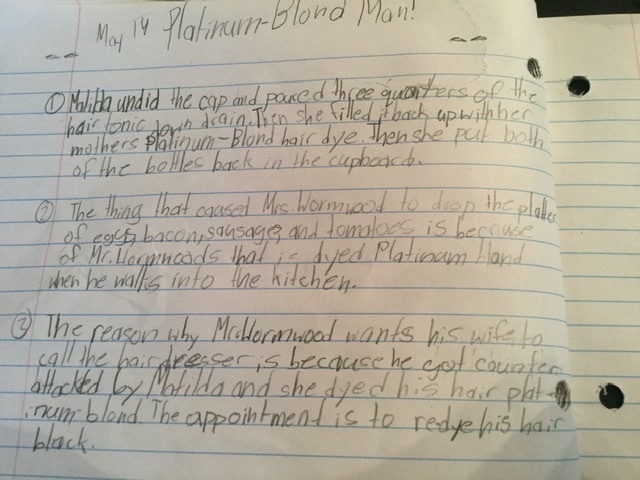 May 14 Platinum-Blond Man!
① Matilda undid the cap and poured three quarters of the
hair tonic down drain. Then she filled it back up with her
mothers Platinum-Blond hair dye. Then she put both
of the bottles back in the cupboard.
② The thing that caused Mrs Wormwood to drop the platter
of eggs, bacon, sausage, and tomatoes is because
of Mr. Wormwoods that is dyed Platinum blond
when he walks into the kitchen.
③ The reason why Mr. Wormwood wants his wife to
call the hairdresser is because he got counter
attacked by Matilda and she dyed his hair plat-
inum-blond. The appointment is to redye his hair
black.